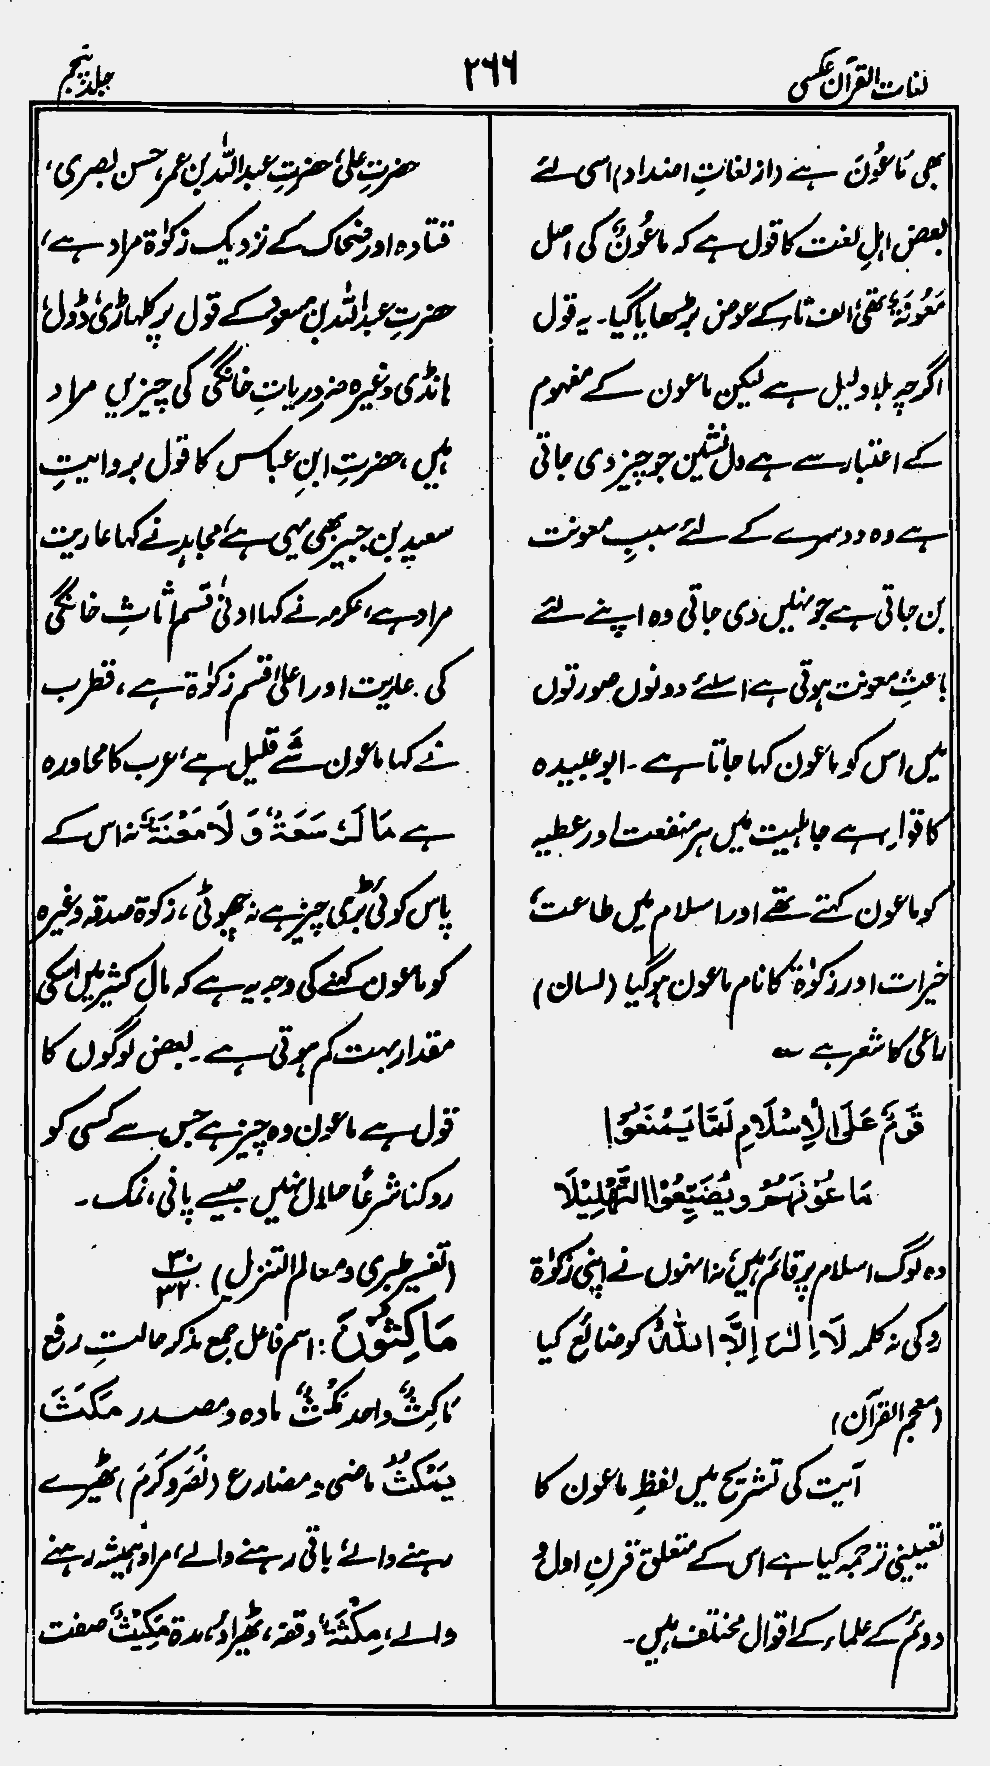 لغات القرآن عکسی
۲۶۶
جلد پنجم
بھی مَاعُونَ ہے (از لغاتِ اضداد) اسی لئے
بعض اہلِ لغت کا قول ہے کہ مَاعُونٌ کی اصل
مَعُونَۃٌ تھی، الف تا کے عوض بڑھایا گیا۔ یہ قول
اگرچہ بلا دلیل ہے لیکن ماعون کے مفہوم
کے اعتبار سے ہے دل نشین جو چیز دی جاتی
ہے وہ دوسرے کے لئے سببِ معونت
بن جاتی ہے جو نہیں دی جاتی وہ اپنے لئے
باعثِ معونت ہوتی ہے اسلئے دونوں صورتوں
میں اس کو ماعون کہا جاتا ہے۔ ابو عبیدہ
کا قول ہے جاہلیت میں ہر منفعت اور عطیہ
کو ماعون کہتے تھے اور اسلام میں طاعت،
خیرات اور زکوٰۃ کا نام ماعون ہوگیا (لسان)
راعی کا شعر ہے ؎
قَوْمٌ عَلَی الْاِسْلَامِ لَمَّا یَمْنَعُوْا
مَاعُوْنَهُمْ وَیُضَیِّعُوْا التَّهْلِیْلَا
وہ لوگ اسلام پر قائم ہیں، نہ انہوں نے اپنی زکوٰۃ
روکی نہ کلمہ لَا اِلٰہَ اِلَّا اللّٰہُ کو ضائع کیا
(معجم القرآن)
آیت کی تشریح میں لفظِ ماعون کا
تعیینی ترجمہ کیا ہے اس کے متعلق قرنِ اول و
دوئم کے علماء کے اقوال مختلف ہیں۔
حضرتِ علی، حضرتِ عبداللہ بن عمر، حسن بصری،
قتادہ اور ضحاک کے نزدیک زکوٰۃ مراد ہے،
حضرتِ عبداللہ بن مسعود کے قول پر کلہاڑی، ڈول،
ہانڈی وغیرہ ضروریاتِ خانگی کی چیزیں مراد
ہیں، حضرتِ ابنِ عباس کا قول بروایتِ
سعید بن جبیر بھی یہی ہے، مجاہد نے کہا عاریت
مراد ہے، عکرمہ نے کہا ادنیٰ قسم اثاثِ خانگی
کی عاریت اور اعلیٰ قسم زکوٰۃ ہے، قطرب
نے کہا ماعون شے قلیل ہے، عرب کا محاورہ
ہے مَا لَہٗ سَعَۃٌ وَ لَا مَعْنَۃٌ نہ اس کے
پاس کوئی بڑی چیز ہے نہ چھوٹی، زکوٰۃ صدقہ وغیرہ
کو ماعون کہنے کی وجہ یہ ہے کہ مالِ کثیر میں اسکی
مقدار بہت کم ہوتی ہے۔ بعض لوگوں کا
قول ہے ماعون وہ چیز ہے جس سے کسی کو
روکنا شرعًا حلال نہیں جیسے پانی، نمک۔
(تفسیر طبری و معالم التنزیل) ۳۰/۳۲
مَاکِثُوْنَ: اسم فاعل جمع مذکر حالتِ رفع
مَاکِثٌ واحد مَکْثٌ مادہ و مصدر مَکَثَ
یَمْکُثُ ماضی و مضارع (نَصَرَ و کَرُمَ) ٹھیرے
رہنے والے، باقی رہنے والے، مراد ہمیشہ رہنے
والے، مِکْثَۃٌ وقفہ، ٹھیراؤ، مدۃ مَکِیْثٌ صفت